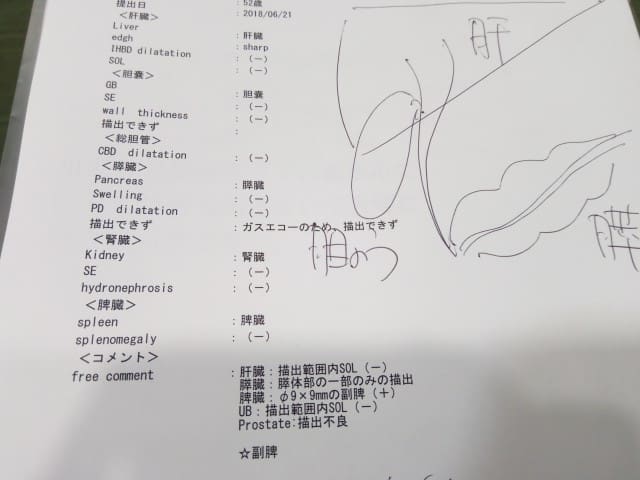 提出日 : 52歳
<肝臓> : 2018/06/21
Liver
edgh : 肝臓
IHBD dilatation : sharp
SOL : (-)
<胆嚢> : (-)
GB
SE : 胆嚢
wall thickness : (-)
描出できず : (-)
<総胆管> :
CBD dilatation : (-)
<膵臓>
Pancreas : 膵臓
Swelling : (-)
PD dilatation : (-)
描出できず : ガスエコーのため、描出できず
<腎臓>
Kidney : 腎臓
SE : (-)
hydronephrosis : (-)
<脾臓>
spleen : 脾臓
splenomegaly : (-)
<コメント>
free comment : 肝臓:描出範囲内SOL(-)
膵臓:膵体部の一部のみの描出
脾臓:φ9×9mmの副脾(+)
UB:描出範囲内SOL(-)
Prostate:描出不良
☆副脾
肝
胆のう
膵